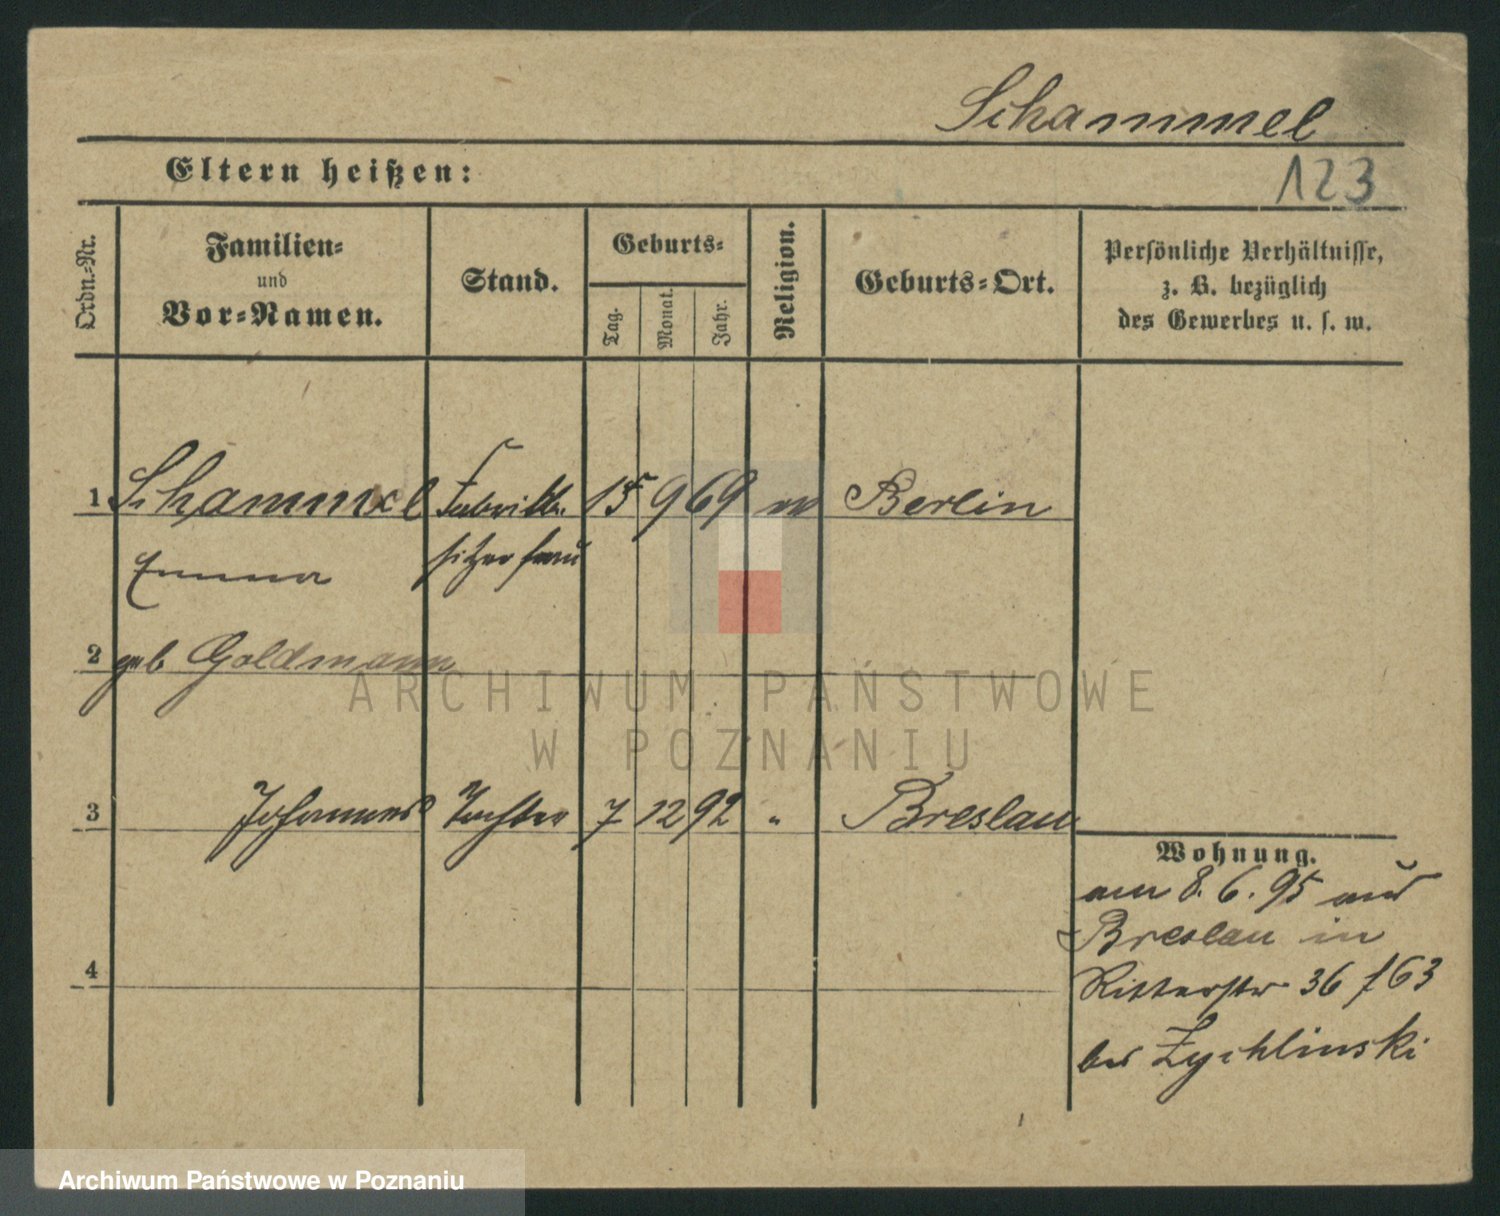 Schammel
Eltern heißen:
123
Ordn.-Nr.
Familien-
und
Vor-Namen.
Stand.
Geburts-
Tag.
Monat.
Jahr.
Religion.
Geburts-Ort.
Persönliche Verhältnisse,
z. B. bezüglich
des Gewerbes u. s. w.
1 Schammel Fabrikbe 15 9 69 Berlin
Emma sitzerfrau
2 geb Goldmann
ARCHIWUM PAŃSTWOWE
W POZNANIU
3 Tochter 7 12 92 " Breslau
Wohnung.
am 8. 6. 95 aus
Breslau in
4
Ritterstr 36 /63
bei Zychlinski
Archiwum Państwowe w Poznaniu